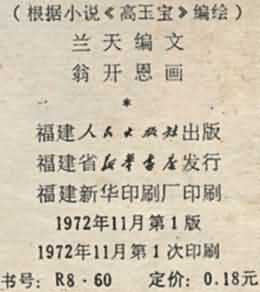 （根据小说《高玉宝》编绘）
兰天编文
翁开恩画
*
福建人民出版社出版
福建省新华书店发行
福建新华印刷厂印刷
1972年11月第1版
1972年11月第1次印刷
书号：R8·60 定价：0.18元